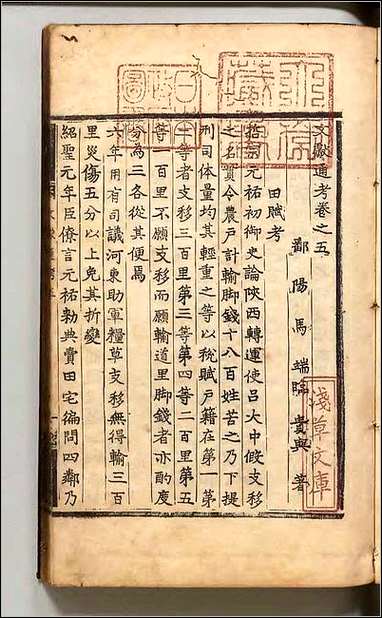 文獻通考卷之五
鄱陽馬端臨貴與著
田賦考
哲宗元祐初御史論陝西轉運使呂大中假支移
之名實令農戶計輸脚錢十八百姓苦之乃下提
刑司体量均其輕重之等以稅賦戶籍在第一第
二等者支移三百里第三等第四等二百里第五
等一百里不願支移而願輸道里脚錢者亦酌度
分為三各從其便焉
六年用有司議河東助軍糧草支移無得輸三百
里災傷五分以上免其折變
紹聖元年臣僚言元祐勑典賣田宅徧問四鄰乃
淺草文庫